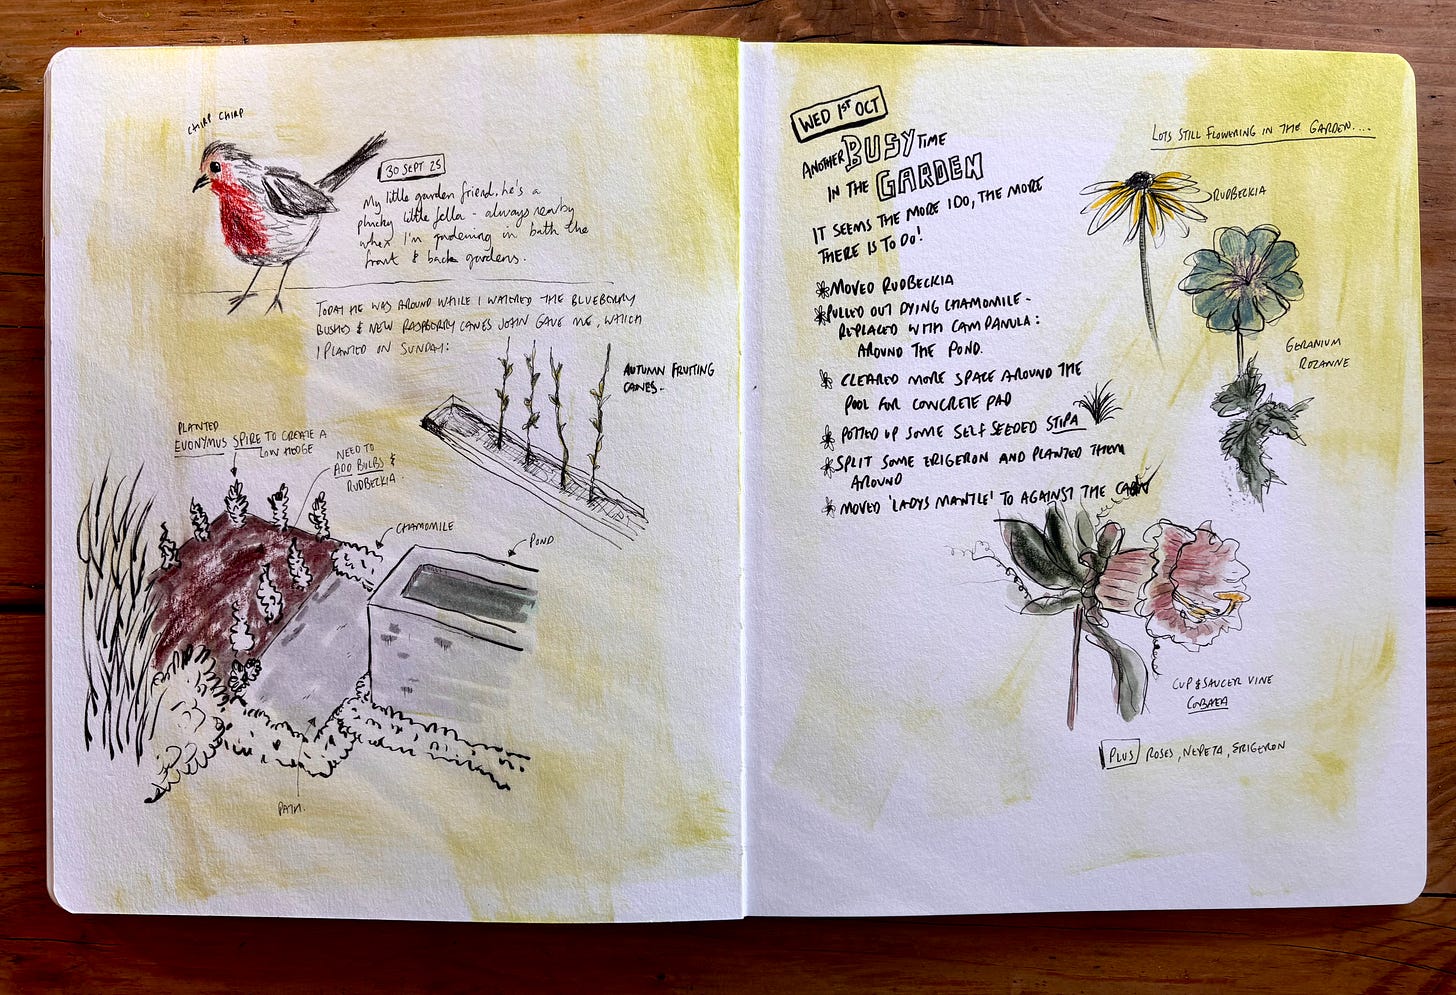 CHIRP CHIRP
30 SEPT 25
My little garden friend, he's a
plucky little fella - always nearby
when I'm gardening in both the
front & back gardens.
TODAY HE WAS AROUND WHILE I WATERED THE BLUEBERRY
BUSHES & NEW RASPBERRY CANES JOHN GAVE ME, WHICH
I PLANTED ON SUNDAY:
AUTUMN FRUITING
CANES.
PLANTED
EUONYMUS SPIRE TO CREATE A
LOW HEDGE
NEED TO
ADD BULBS &
RUDBECKIA.
CHAMOMILE
POND
PATH.
WED 1ST OCT
ANOTHER BUSY TIME
IN THE GARDEN
IT SEEMS THE MORE I DO, THE MORE
THERE IS TO DO!
MOVED RUDBECKIA
PULLED OUT DYING CHAMOMILE -
REPLACED WITH CAMPANULA:
AROUND THE POND.
CLEARED MORE SPACE AROUND THE
POOL FOR CONCRETE PAD
POTTED UP SOME SELF SEEDED STIPA
SPLIT SOME ERIGERON AND PLANTED THEM
AROUND
MOVED 'LADYS MANTLE' TO AGAINST THE
LOTS STILL FLOWERING IN THE GARDEN....
RUDBECKIA
GERANIUM
ROZANNE
CUP & SAUCER VINE
COBAEA
PLUS ROSES, NEPETA, ERIGERON